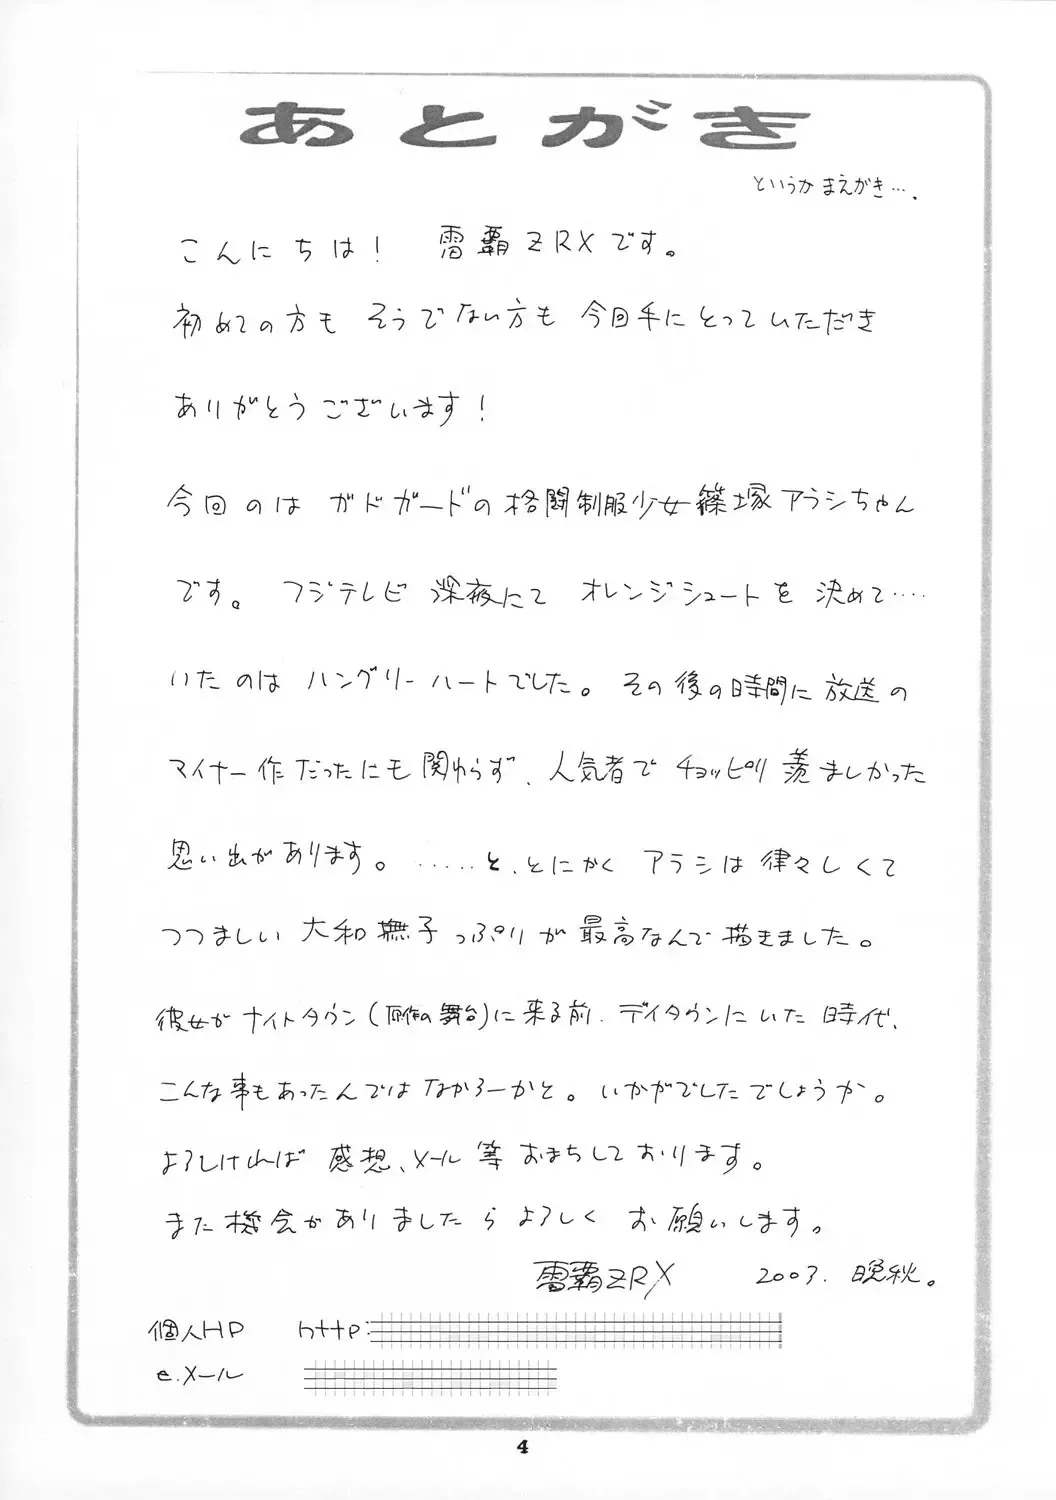 あとがき
というかまえがき….
こんにちは! 雷覇ZRXです。
初めての方も そうでない方も 今回手にとっていただき
ありがとうございます!
今回のは ガドガードの格闘制服少女篠塚アラシちゃん
です。 フジテレビ 深夜にて オレンジシュートを 決めて‥‥
いたのは ハングリーハートでした。 その後の時間に 放送の
マイナー作だったにも関わらず、人気者で チョッピリ 羨ましかった
思い出があります。 ……と、とにかく アラシは 律々しくて
つつましい 大和撫子っぷりが 最高なんで 描きました。
彼女が ナイトタウン(原作の舞台)に来る前、デイタウンにいた 時代、
こんな事もあったんではなかろーかと。いかがでしたでしょうか。
よろしければ 感想、メール等 おまちしております。
また機会がありましたら よろしく お願いします。
雷覇ZRX 2003. 晩秋。
個人HP http:
e.メール
4